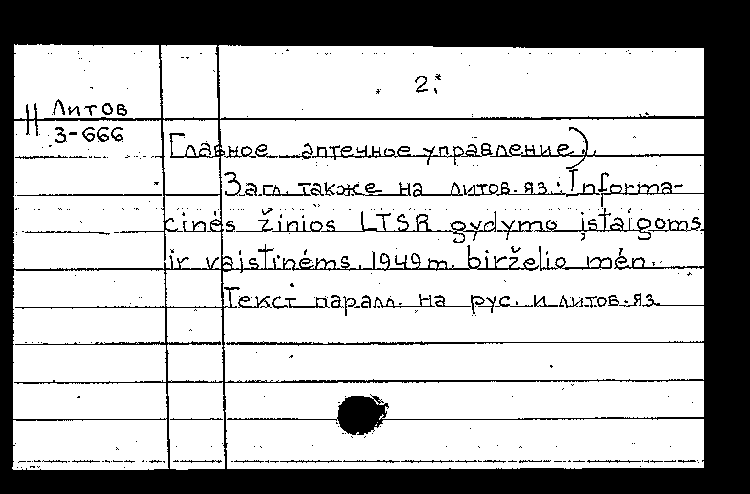 2.
II Литов
3-666
Главное аптечное управление).
Загл. также на литов. яз.: Informa-
cinės žinios LTSR gydymo įstaigoms
ir vaistinėms. 1949 m. birželio mėn.
Текст паралл. на рус. и литов. яз.